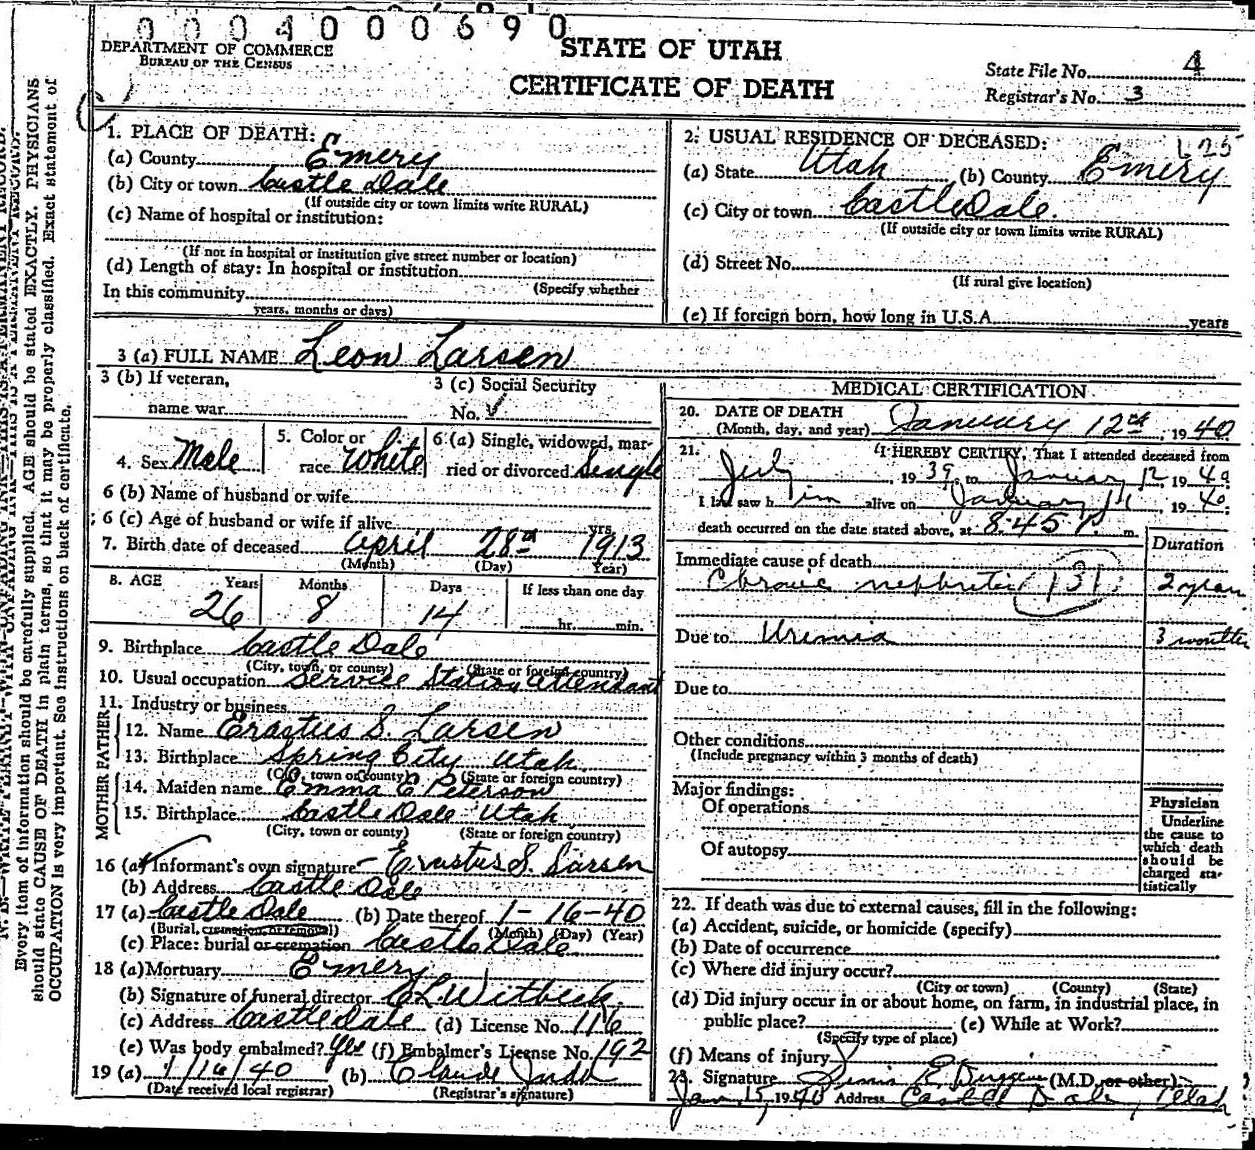 0004000690
DEPARTMENT OF COMMERCE
BUREAU OF THE CENSUS
STATE OF UTAH
CERTIFICATE OF DEATH
State File No. 4
Registrar's No. 3
1. PLACE OF DEATH:
(a) County Emery
(b) City or town Castle Dale
(If outside city or town limits write RURAL)
(c) Name of hospital or institution:
(If not in hospital or institution give street number or location)
(d) Length of stay: In hospital or institution
(Specify whether
In this community
years, months or days)
2. USUAL RESIDENCE OF DECEASED:
(a) State Utah (b) County Emery
(c) City or town Castle Dale.
(If outside city or town limits write RURAL)
(d) Street No.
(If rural give location)
(e) If foreign born, how long in U.S.A. years
3 (a) FULL NAME Leon Larsen
3 (b) If veteran,
name war
3 (c) Social Security
No.
4. Sex Male
5. Color or
race White
6 (a) Single, widowed, mar-
ried or divorced Single
6 (b) Name of husband or wife
6 (c) Age of husband or wife if alive yrs.
7. Birth date of deceased April 28 1913
(Month) (Day) Year)
8. AGE Years Months Days If less than one day
26 8 14 hr. min.
9. Birthplace Castle Dale
(City, town, or county) (State or foreign country)
10. Usual occupation Service Station attendant
11. Industry or business
FATHER
12. Name Erastus S. Larsen
13. Birthplace Spring City Utah
(City, town or county) (State or foreign country)
MOTHER
14. Maiden name Emma E Peterson
15. Birthplace Castle Dale Utah
(City, town or county) (State or foreign country)
16 (a) Informant's own signature Erastus S. Larsen
(b) Address Castle Dale
17 (a) Castle Dale (b) Date thereof 1-16-40
(Burial, cremation, or removal) (Month) (Day) (Year)
(c) Place: burial or cremation Castle Dale
18 (a) Mortuary Emery
(b) Signature of funeral director Witbeck
(c) Address Castle Dale (d) License No. 116
(e) Was body embalmed? Yes (f) Embalmer's License No. 192
19 (a) 1/16/40 (b) Claude
(Date received local registrar) (Registrar's signature)
MEDICAL CERTIFICATION
20. DATE OF DEATH
(Month, day, and year) January 12th, 1940
21. I HEREBY CERTIFY, That I attended deceased from
July, 1939, to January 12 1940
I last saw him alive on January 11, 1940;
death occurred on the date stated above, at 8:45 P. m.
Duration
Immediate cause of death
Chronic nephritis 131 2 years
Due to Uremia 3 months
Due to
Other conditions
(Include pregnancy within 3 months of death)
Major findings:
Of operations
Of autopsy
Physician
Underline
the cause to
which death
should be
charged sta-
tistically
22. If death was due to external causes, fill in the following:
(a) Accident, suicide, or homicide (specify)
(b) Date of occurrence
(c) Where did injury occur?
(City or town) (County) (State)
(d) Did injury occur in or about home, on farm, in industrial place, in
public place? (e) While at Work?
(Specify type of place)
(f) Means of injury
23. Signature (M.D. or other)
Jan. 15, 1940 Address Castle Dale, Utah
Every item of information should be carefully supplied. AGE should be stated EXACTLY. PHYSICIANS
should state CAUSE OF DEATH in plain terms, so that it may be properly classified. Exact statement of
OCCUPATION is very important. See instructions on back of certificate.